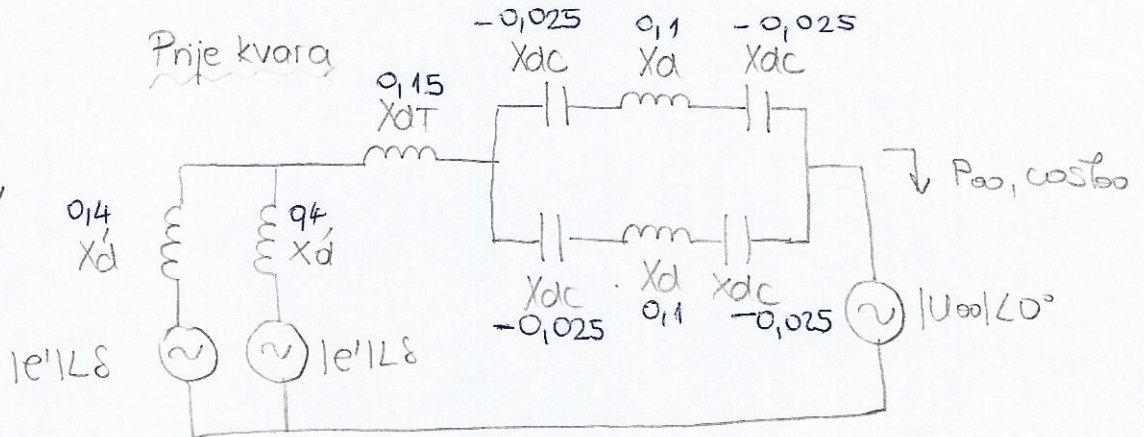 Prije kvara
-0,025 0,1 -0,025
Xdc Xd Xdc
0,15
XdT
P∞, cosφ∞
0,4 0,4
X'd X'd
Xdc Xd Xdc
-0,025 0,1 -0,025
|U∞|∠0°
|e'|∠δ |e'|∠δ